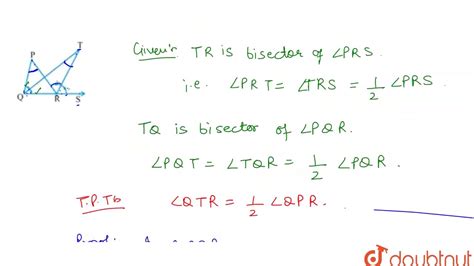 T
P
Q R S
Given:- TR is bisector of ∠PRS.
i.e. ∠PRT = ∠TRS = 1/2 ∠PRS.
TQ is bisector of ∠PQR.
∠PQT = ∠TQR = 1/2 ∠PQR.
T.P.Tb ∠QTR = 1/2 ∠QPR.
doubtnut